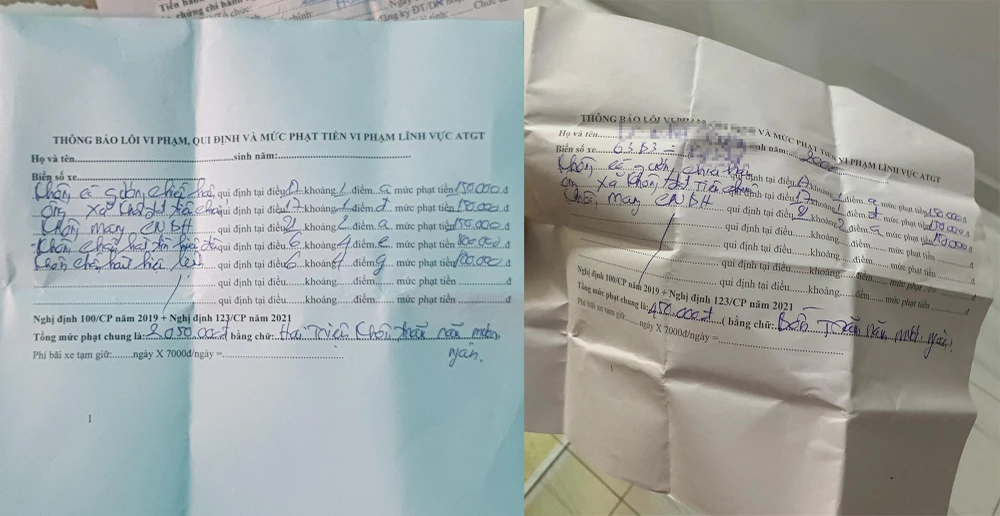 Tiền
chứng chỉ hành
chính:
đăng ký ĐT/DN
THÔNG BÁO LỖI VI PHẠM, QUI ĐỊNH VÀ MỨC PHẠT TIỀN VI PHẠM LĨNH VỰC ATGT
Họ và tên..........sinh năm:..........
Biển số xe..........
Không có gương chiếu hậu, qui định tại điều 17 khoảng 1 điểm a mức phạt tiền 150.000 đ
ống xả không qui định tại điều 17 khoảng 1 điểm đ mức phạt tiền 150.000 đ
Không mang CNBH qui định tại điều 21 khoảng 2 điểm a mức phạt tiền 150.000 đ
qui định tại điều 6 khoảng 4 điểm e mức phạt tiền 800.000 đ
qui định tại điều 6 khoảng 4 điểm g mức phạt tiền 800.000 đ
qui định tại điều......khoảng......điểm......mức phạt tiền..........đ
Nghị định 100/CP năm 2019 + Nghị định 123/CP năm 2021
Tổng mức phạt chung là: 2.050.000đ ( bằng chữ: Hai Triệu Không trăm năm mươi
ngàn.
Phí bãi xe tạm giữ:........ngày X 7000đ/ngày =..........
1
THÔNG BÁO VÀ MỨC PHẠT TIỀN VI PHẠM LĨNH VỰC ATGT
Họ và tên.......... sinh năm:.....2000
Biển số xe 63B3 -
Không có gương chiếu hậu qui định tại điều 17 khoảng 1 điểm a mức phạt tiền 150.000 đ
ống xả không qui định tại điều 17 khoảng 1 điểm đ mức phạt tiền 150.000 đ
Không mang CNBH qui định tại điều 21 khoảng 2 điểm a mức phạt tiền 150.000 đ
qui định tại điều......khoảng......điểm......mức phạt tiền..........đ
qui định tại điều......khoảng......điểm......mức phạt tiền..........đ
qui định tại điều......khoảng......điểm......mức phạt tiền..........đ
Nghị định 100/CP năm 2019 + Nghị định 123/CP năm 2021
Tổng mức phạt chung là: 450.000đ ( bằng chữ: Bốn Trăm năm mươi ngàn.
Phí bãi xe tạm giữ:........ngày X 7000đ/ngày =..........